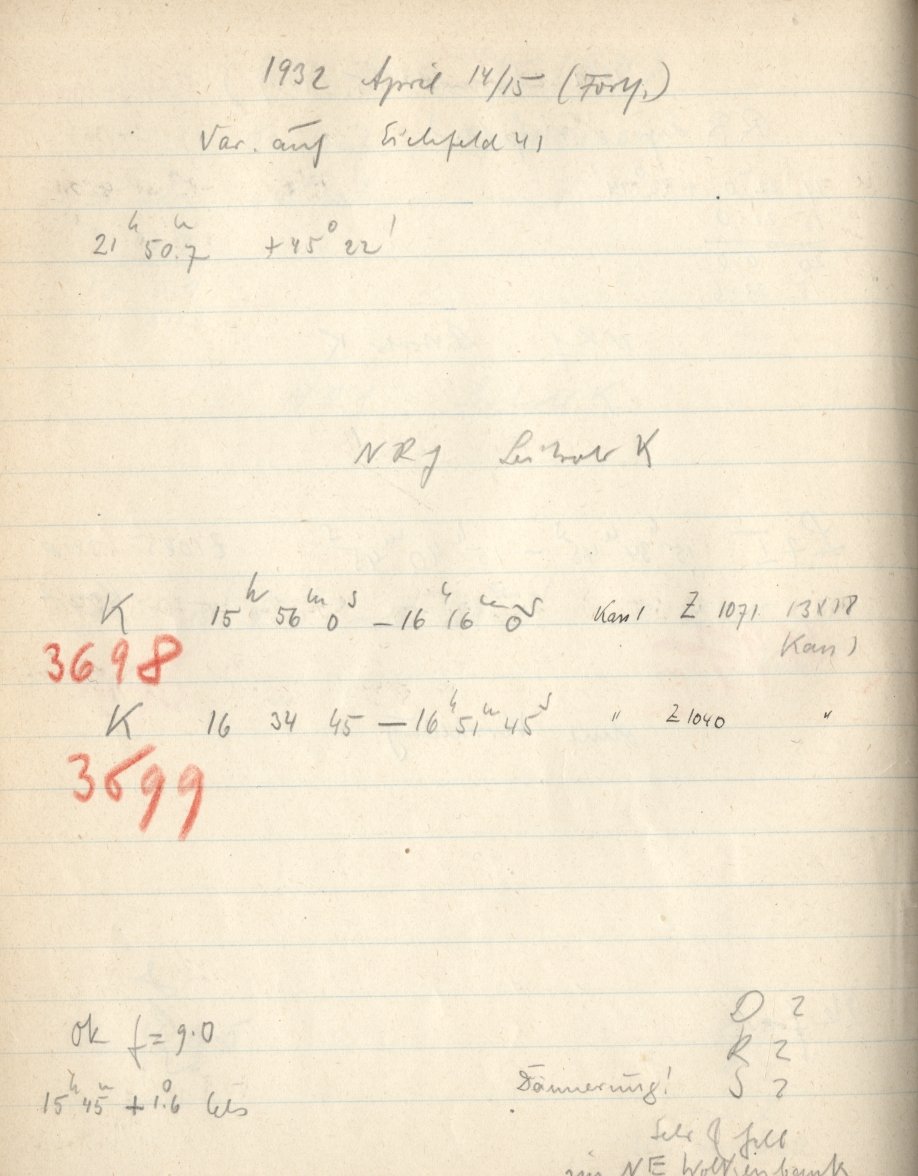 1932 April 14/15 (Forts.)
Var. auf Eichfeld 41
21ʰ 50.7ᵐ +45° 22'
NRf K
K 15ʰ 56ᵐ 0ˢ – 16ʰ 16ᵐ 0ˢ Kass 1 Z 1071 13x18
Kass)
3698
K 16 34 45 – 16ʰ 51ᵐ 45ˢ " Z 1040 "
3699
Ok f = 9.0
D 2
R 2
15ʰ 45ᵐ + 1.6° Cels
Dämmerung! S 2
Sehr hell
im NE Wolkenbank